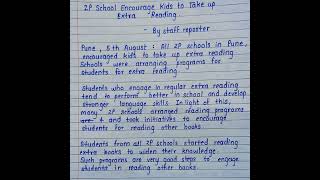 2P School Encourage Kids to Take up
Extra Reading.
- By staff repoter
Pune, 5th August : All 2P schools in Pune,
encouraged kids to take up extra reading.
Schools were arranging programs for
students for extra reading.
Students who engage in regular extra reading
tend to perform better in school and develop
stronger language skills. In light of this,
many 2P schools arranged reading programs
and took initiatives to encourage
students for reading other books
Students from all 2P schools started reading
extra books to widen their knowledge.
Such programs are very good steps to engage
students in reading other books.